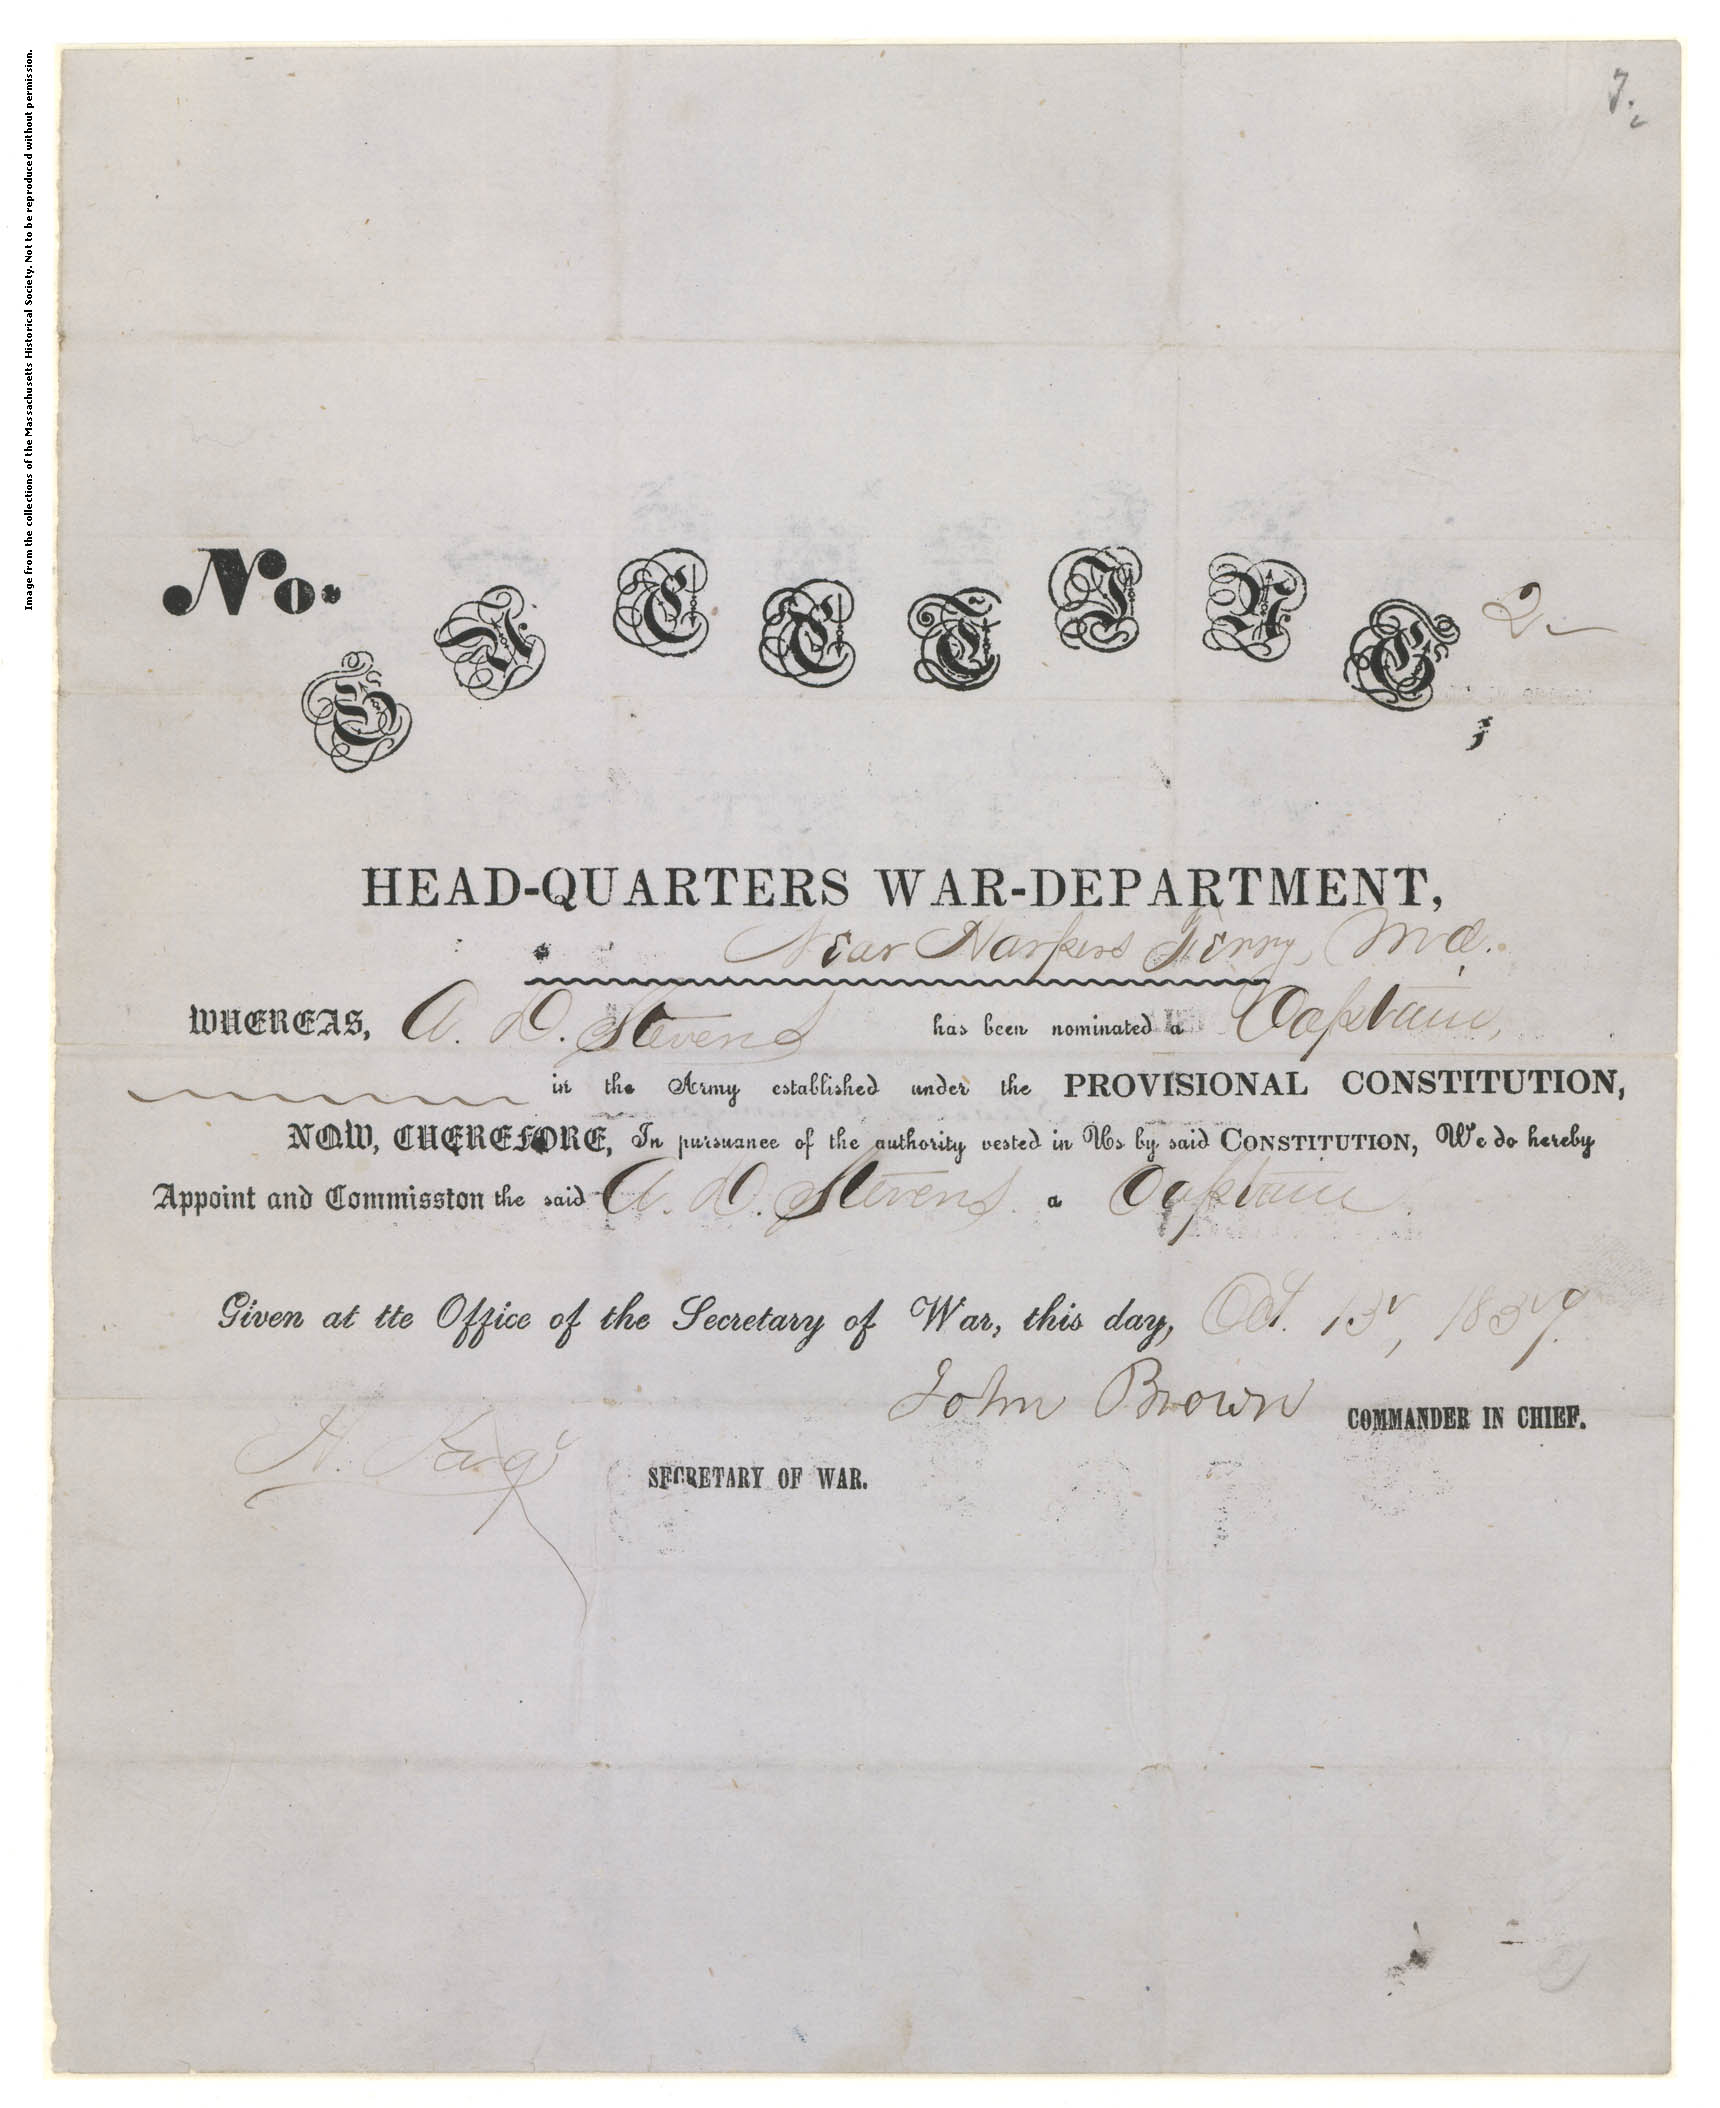 Image from the collections of the Massachusetts Historical Society. Not to be reproduced without permission.
7.
No. 2.
GREETING;
HEAD-QUARTERS WAR-DEPARTMENT,
Near Harpers Ferry, Md.
WHEREAS, A. D. Stevens has been nominated a Captain,
in the Army established under the PROVISIONAL CONSTITUTION,
NOW, THEREFORE, In pursuance of the authority vested in Us by said CONSTITUTION, We do hereby
Appoint and Commission the said A. D. Stevens. a Captain.
Given at tte Office of the Secretary of War, this day, Oct. 15, 1859.
John Brown COMMANDER IN CHIEF.
H. Kagi SECRETARY OF WAR.